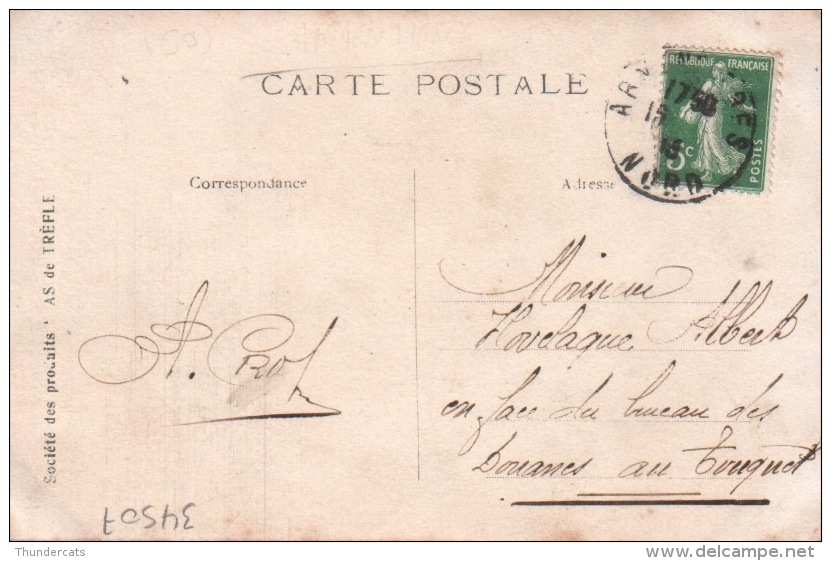 CARTE POSTALE
REPUBLIQUE FRANÇAISE
POSTES
5c
1750
15
NORD
Correspondance
Adresse
Société des produits AS de TRÈFLE
A. Crol
Monsieur
Hovelaque Albert
en face du bureau des
Douanes au Touquet
34507
Thundercats
delcampe.net